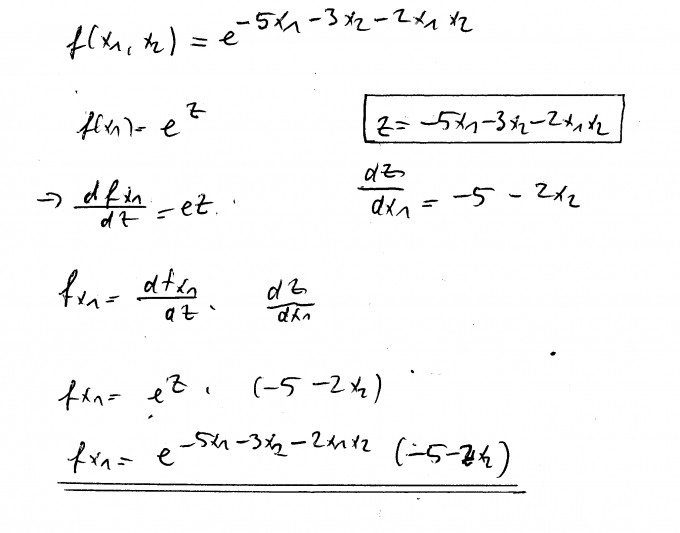 f(x₁, x₂) = e^{-5x₁-3x₂-2x₁x₂}
f(x₁) = e^z
z = -5x₁-3x₂-2x₁x₂
→ df_{x₁}/dz = e^z.
dz/dx₁ = -5 - 2x₂
f_{x₁} = df_{x₁}/dz · dz/dx₁
f_{x₁} = e^z · (-5 -2x₂)
f_{x₁} = e^{-5x₁-3x₂-2x₁x₂} (-5-2x₂)